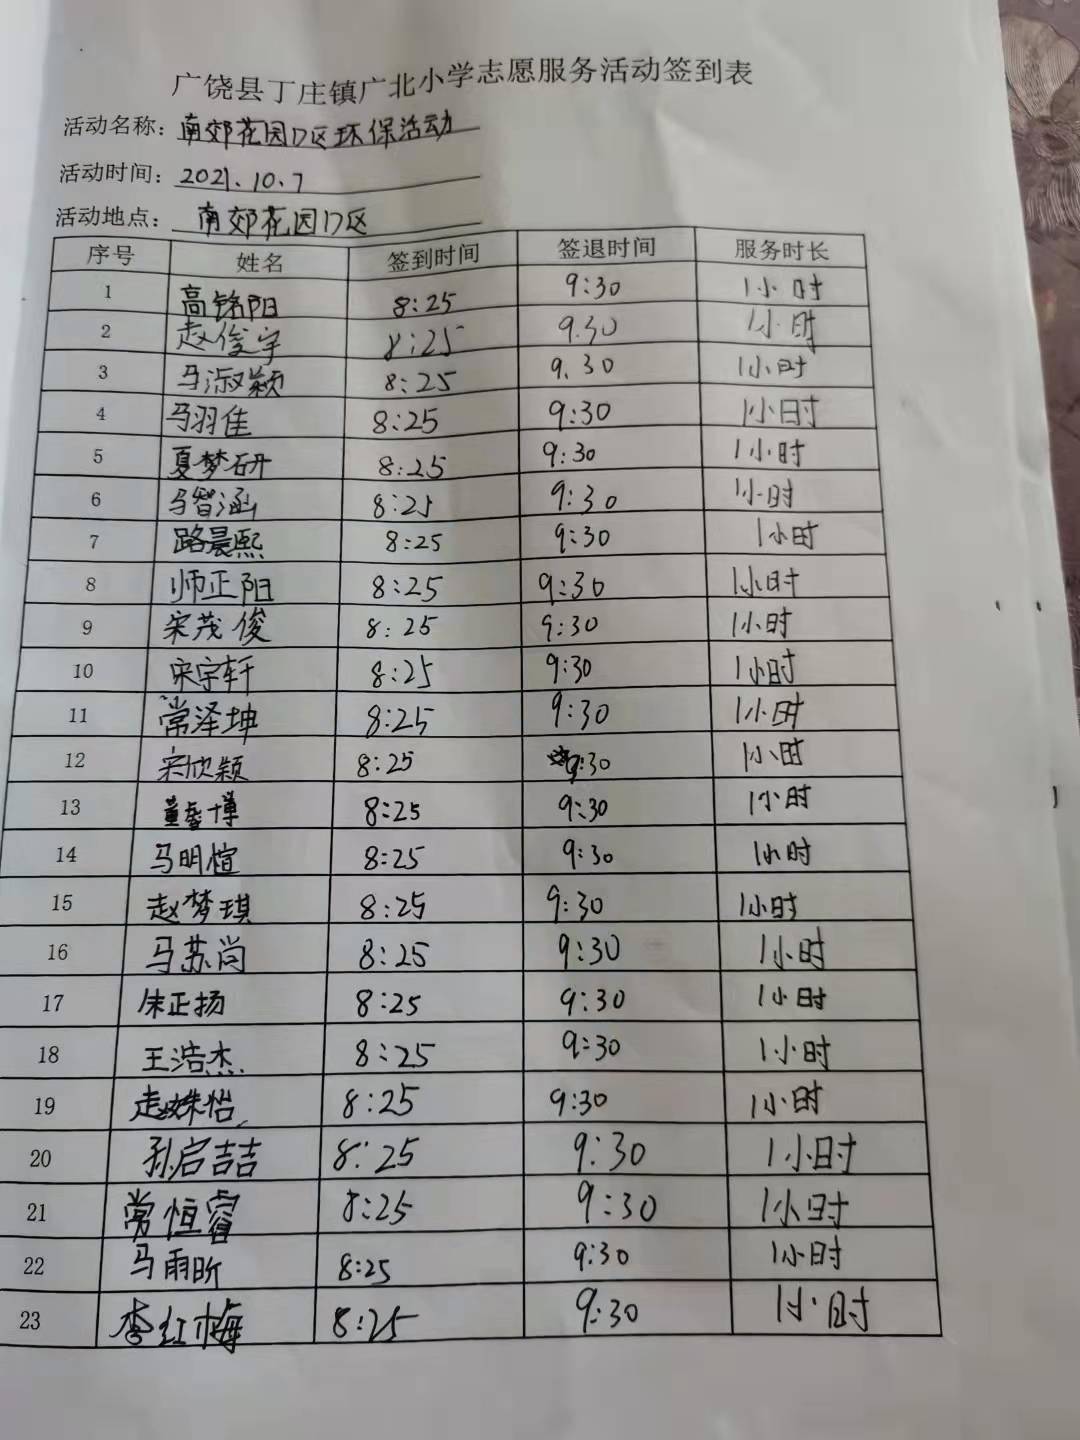 广饶县丁庄镇广北小学志愿服务活动签到表
活动名称：南郊花园17区环保活动
活动时间：2021.10.7
活动地点：南郊花园17区
序号 姓名 签到时间 签退时间 服务时长
1 高铭阳 8:25 9:30 1小时
2 赵俊宇 8:25 9.30 1小时
3 马淑颖 8:25 9.30 1小时
4 马羽佳 8:25 9:30 1小时
5 夏梦研 8:25 9:30 1小时
6 马智涵 8:25 9:30 1小时
7 路晨熙 8:25 9:30 1小时
8 师正阳 8:25 9:30 1小时
9 宋茂俊 8:25 9:30 1小时
10 宋宇轩 8:25 9:30 1小时
11 常泽坤 8:25 9:30 1小时
12 宋欣颖 8:25 9:30 1小时
13 董 博 8:25 9:30 1小时
14 马明煊 8:25 9:30 1小时
15 赵梦琪 8:25 9:30 1小时
16 马苏尚 8:25 9:30 1小时
17 朱正扬 8:25 9:30 1小时
18 王浩杰 8:25 9:30 1小时
19 赵姝怡 8:25 9:30 1小时
20 孙启喆 8:25 9:30 1小时
21 常恒睿 8:25 9:30 1小时
22 马雨昕 8:25 9:30 1小时
23 李红梅 8:25 9:30 1小时